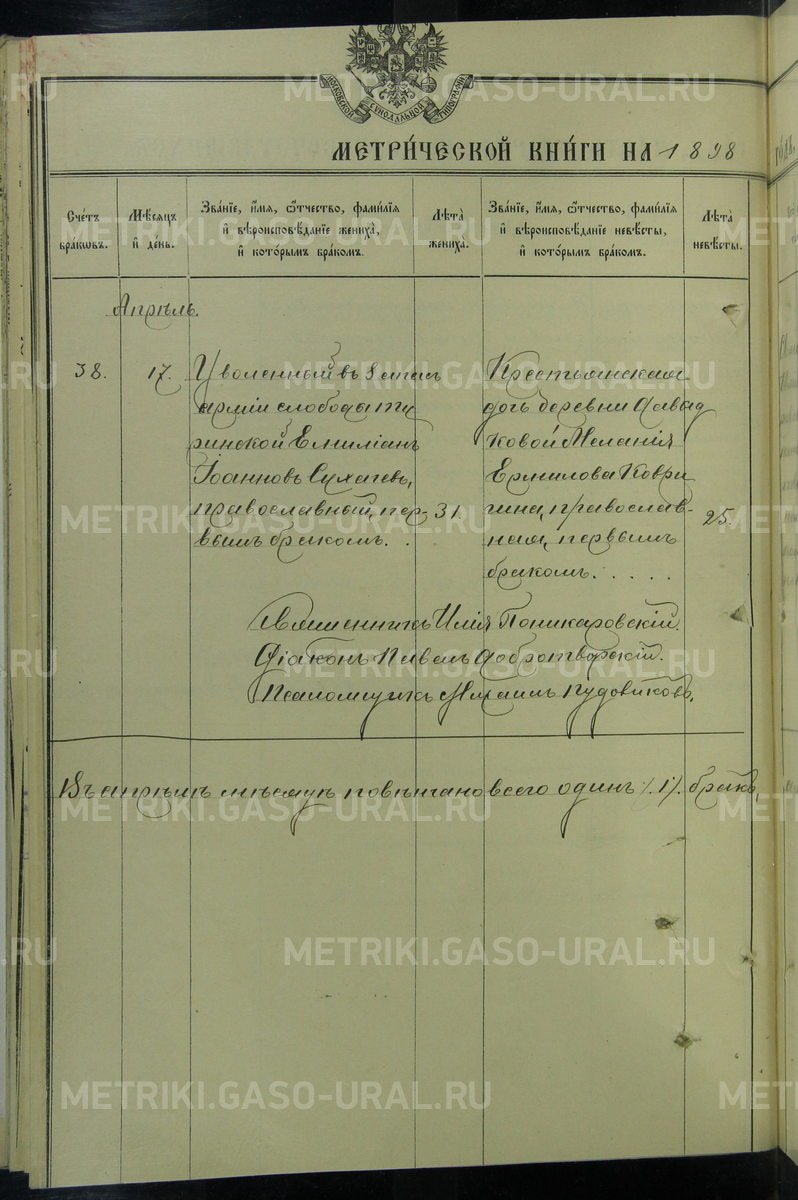 МОСКОВСКОЙ СѴНОДАЛЬНОЙ ТИПОГРАФІИ
МЕТРИ́ЧЕСКОЙ КНИ́ГИ НА 1898
Сче́тъ бра́кωвъ.
Мѣ́сяцъ и҆ де́нь.
Зва́нїе, и҆́мя, ѻ҆́тчество, фами́лїя и҆ вѣроисповѣ́данїе жениха̀, и҆ кото́рымъ бра́комъ.
Лѣ́та жениха̀.
Зва́нїе, и҆́мя, ѻ҆́тчество, фами́лїя и҆ вѣроисповѣ́данїе невѣ́сты, и҆ кото́рымъ бра́комъ.
Лѣ́та невѣ́сты.
Апрѣль.
38.
17.
Уволенный въ запасъ
арміи слободы Ту
ринской Емиліанъ
Іоанновъ Сухаревъ,
православный, пер-
вымъ бракомъ. .
31.
Крестьянская
дочь деревни Давыд
ковой Меланія
Ермилова Коври
гина, православ-
ная, первымъ
бракомъ. . . . .
25.
Священникъ Илія Поникаровскій.
Діаконъ Павелъ Добротворскій.
Псаломщикъ Михаилъ Пудовиковъ.
Въ апрѣлѣ мѣсяцѣ повѣнчано всего одинъ /.1/. бракъ.
METRIKI.GASO-URAL.RU